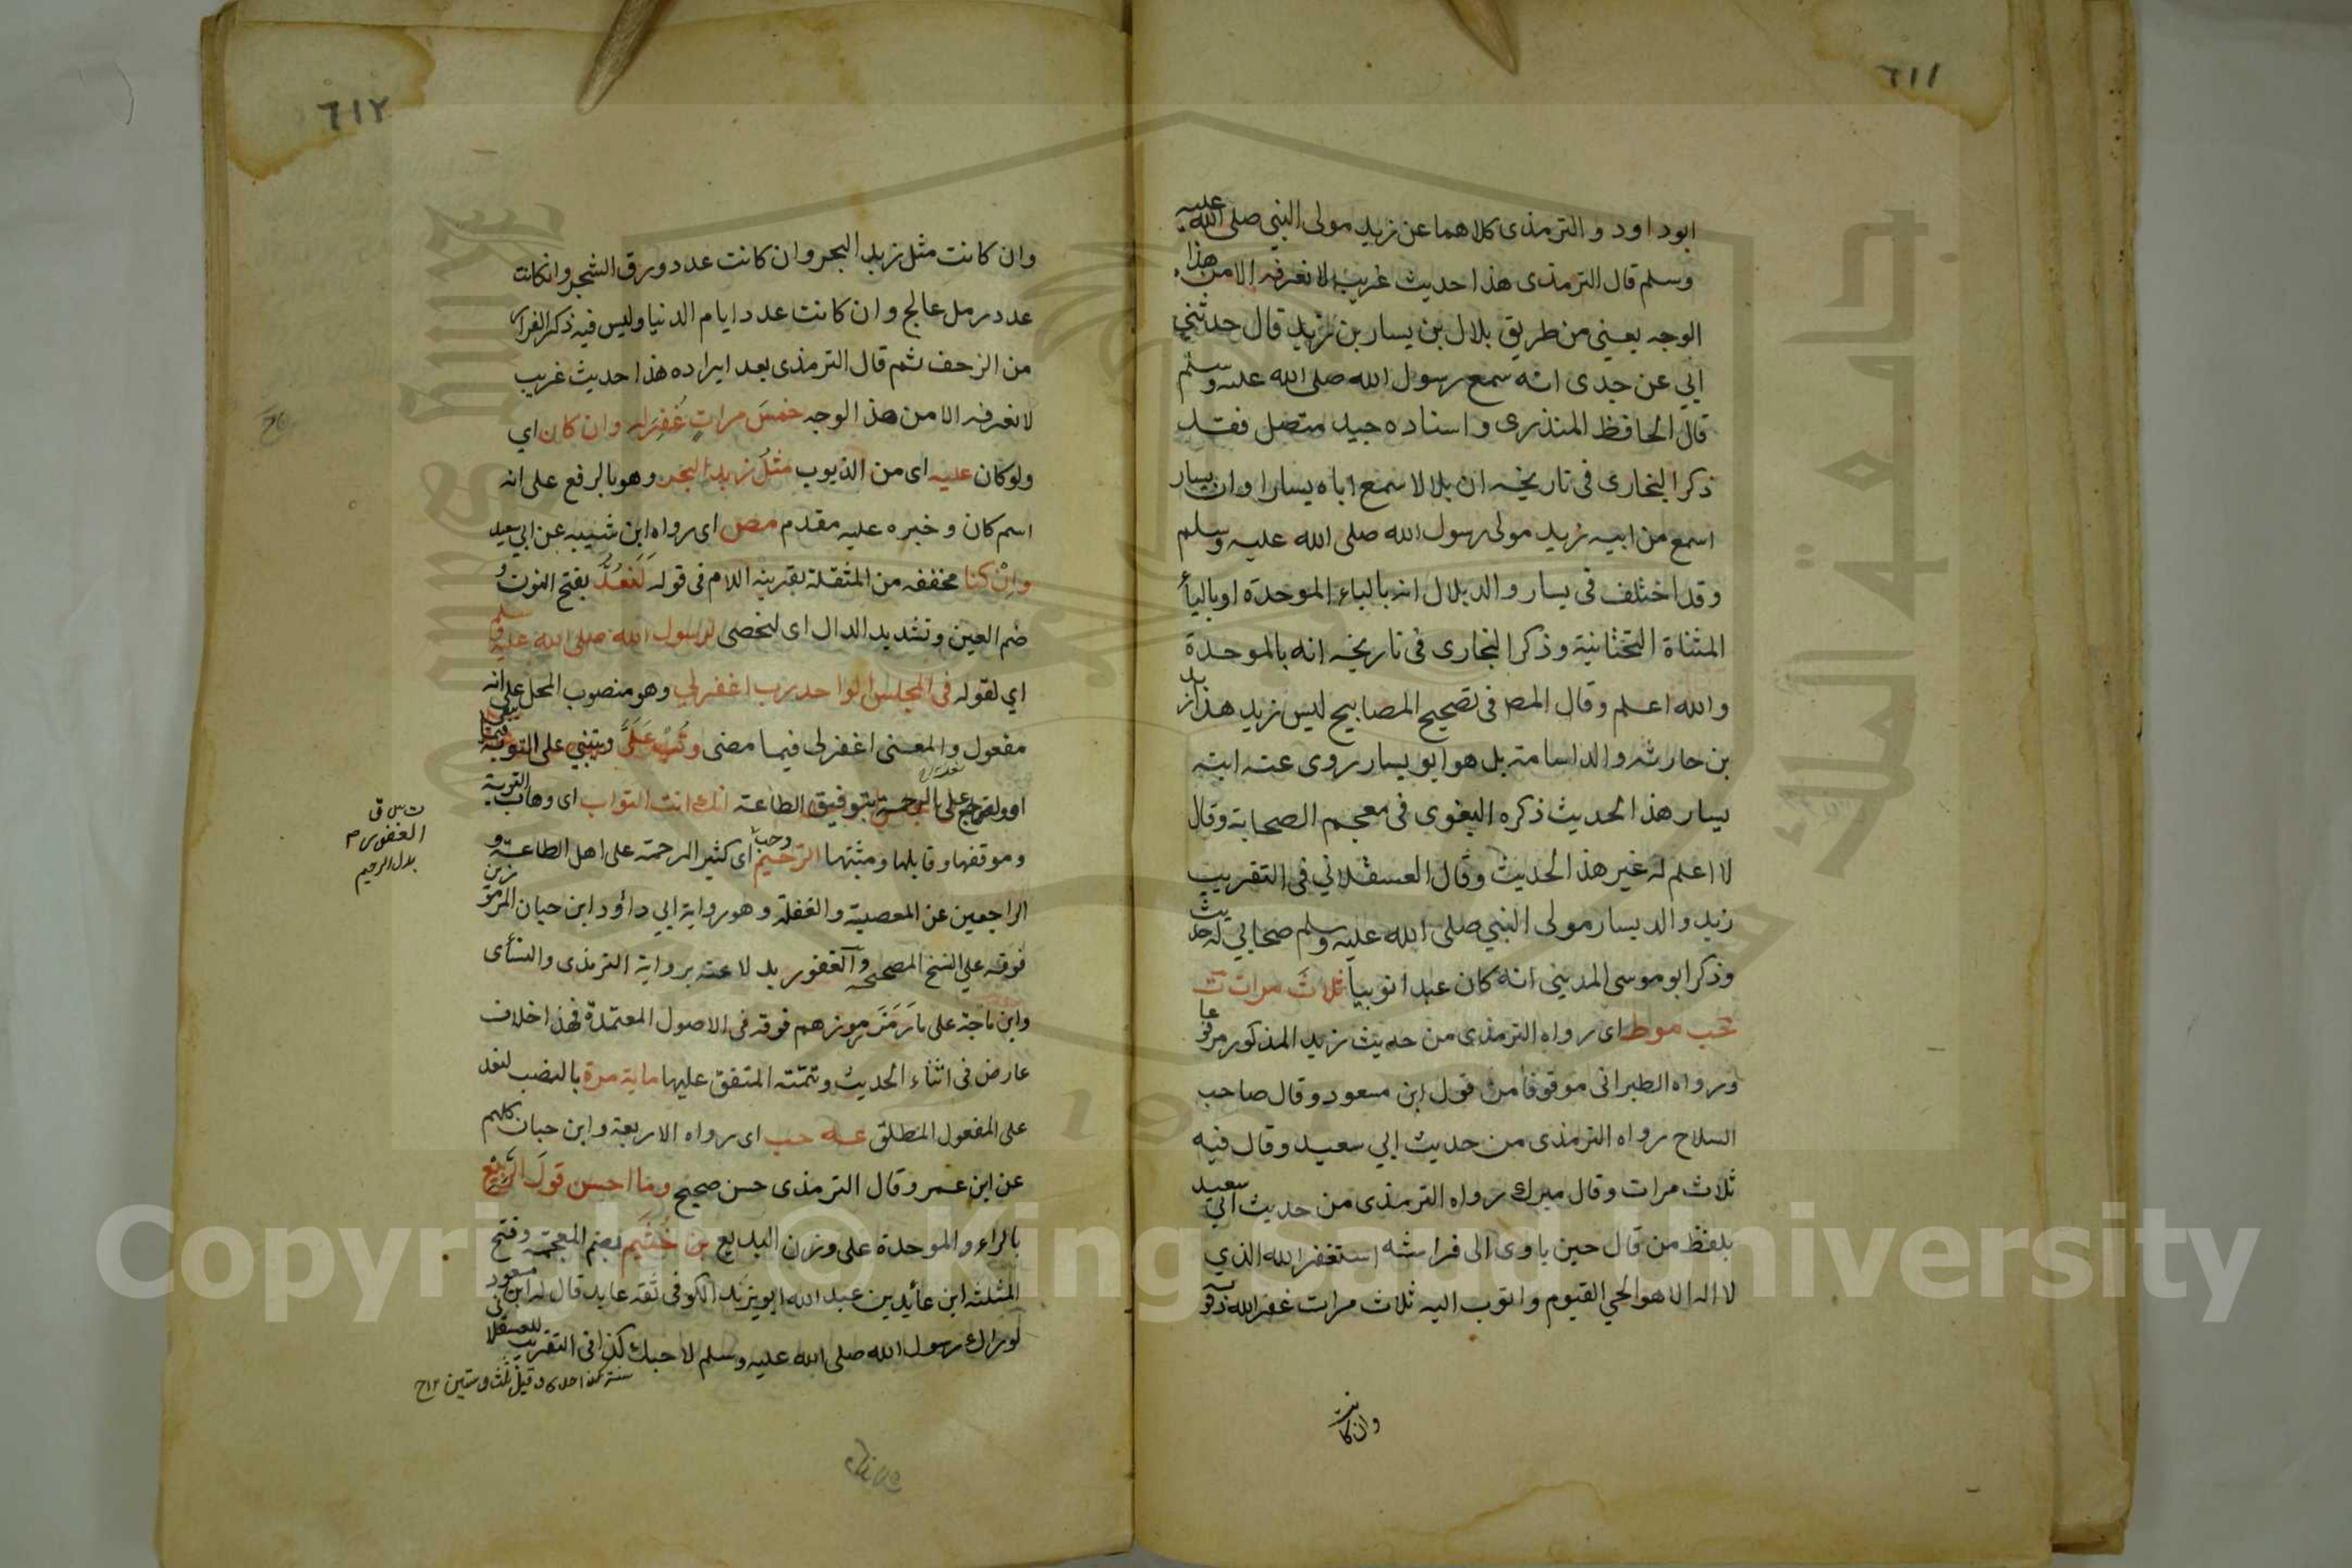 ٦١١
ابوداود والترمذى كلاهما عن زيد مولى النبي صلى الله عليه
وسلم قال الترمذى هذا حديث غريب لا نعرفه الا من هذا
الوجه يعنى من طريق بلال بن يسار بن زيد قال حدثني
ابي عن جدى انه سمع رسول الله صلى الله عليه وسلم
قال الحافظ المنذرى واسناده جيد متصل فقد
ذكر البخارى فى تاريخه ان بلالا سمع اباه يسارا وان يسار
اسمع من ابيه زيد مولى رسول الله صلى الله عليه وسلم
وقد اختلف فى يسار والد بلال انه بالباء الموحدة او بالياء
المثناة التحتانية وذكر البخارى فى تاريخه انه بالموحدة
والله اعلم وقال المص فى تصحيح المصابيح ليس زيد هذا زيد
بن حارثه والد اسامة بل هو ابو يسار روى عنه ابنه
يسار هذا الحديث ذكره البغوى فى معجم الصحابة وقال
لا اعلم له غير هذا الحديث وقال العسقلاني فى التقريب
زيد والد يسار مولى النبي صلى الله عليه وسلم صحابي له حديث
وذكر ابو موسى المدينى انه كان عبدا نوبيا ثلاث مرات ت
حب موط اى رواه الترمذى من حديث زيد المذكور مرفوعا
ورواه الطبرانى موقوفا من قول ابن مسعود وقال صاحب
السلاح رواه الترمذى من حديث ابي سعيد وقال فيه
ثلاث مرات وقال ميرك رواه الترمذى من حديث ابي سعيد
بلفظ من قال حين ياوى الى فراشه استغفر الله الذي
لا اله الا هو الحي القيوم واتوب اليه ثلاث مرات غفر الله ذنوبه
وان كانت
٦١٢
وان كانت مثل زبد البحر وان كانت عدد ورق الشجر وانكانت
عدد رمل عالج وان كانت عدد ايام الدنيا وليس فيه ذكر الفرار
من الزحف ثم قال الترمذى بعد ايراده هذا حديث غريب
لا نعرفه الا من هذ الوجه خمس مرات غفر له وان كان اي
ولو كان عليه اى من الذيوب مثل زبد البحر وهو بالرفع على انه
اسم كان وخبره عليه مقدم مص اى رواه ابن شيبه عن ابي سعيد
وان كنا مخففه من المثقلة بقرينة اللام فى قوله لنعد بفتح النون و
ضم العين وتشديد الدال اى لنحصى لرسول الله صلى الله عليه وسلم
اي لقوله فى المجلس الواحد رب اغفر لي وهو منصوب المحل على انه
مفعول والمعنى اغفر لى فيما مضى وتب على وثبتني على التوبة فيما بقى
او ارجع على بالرحمة بتوفيق الطاعة انك انت التواب اى وهاب التوبة
وموقفها وقابلها ومثبتها الرحيم اى كثير الرحمة على اهل الطاعة و
الراجعين عن المعصية والغفلة وهو رواية ابي داود ابن حبان المرموزين
فوقه على النسخ المصححه والغفور بدلا عنه برواية الترمذى والنسأى
وابن ماجة على ما رمز رموزهم فوقه فى الاصول المعتمدة فهذا خلاف
عارض فى اثناء الحديث وتتمته المتفق عليها ماية مرة بالنصب
على المفعول المطلق عه حب اى رواه الاربعة وابن حبان كلهم
عن ابن عمر وقال الترمذى حسن صحيح وما احسن قول الربيع
بالراء والموحدة على وزن البديع بن خثيم بضم المعجمة وفتح
المثلثه ابن عائد بن عبد الله ابو يزيد الكوفى ثقه عابد قال له ابن مسعود
لو راك رسول الله صلى الله عليه وسلم لاحبك كذا فى التقريب للعسقلانى
ت س ق
الغفور م
بدل الرحيم